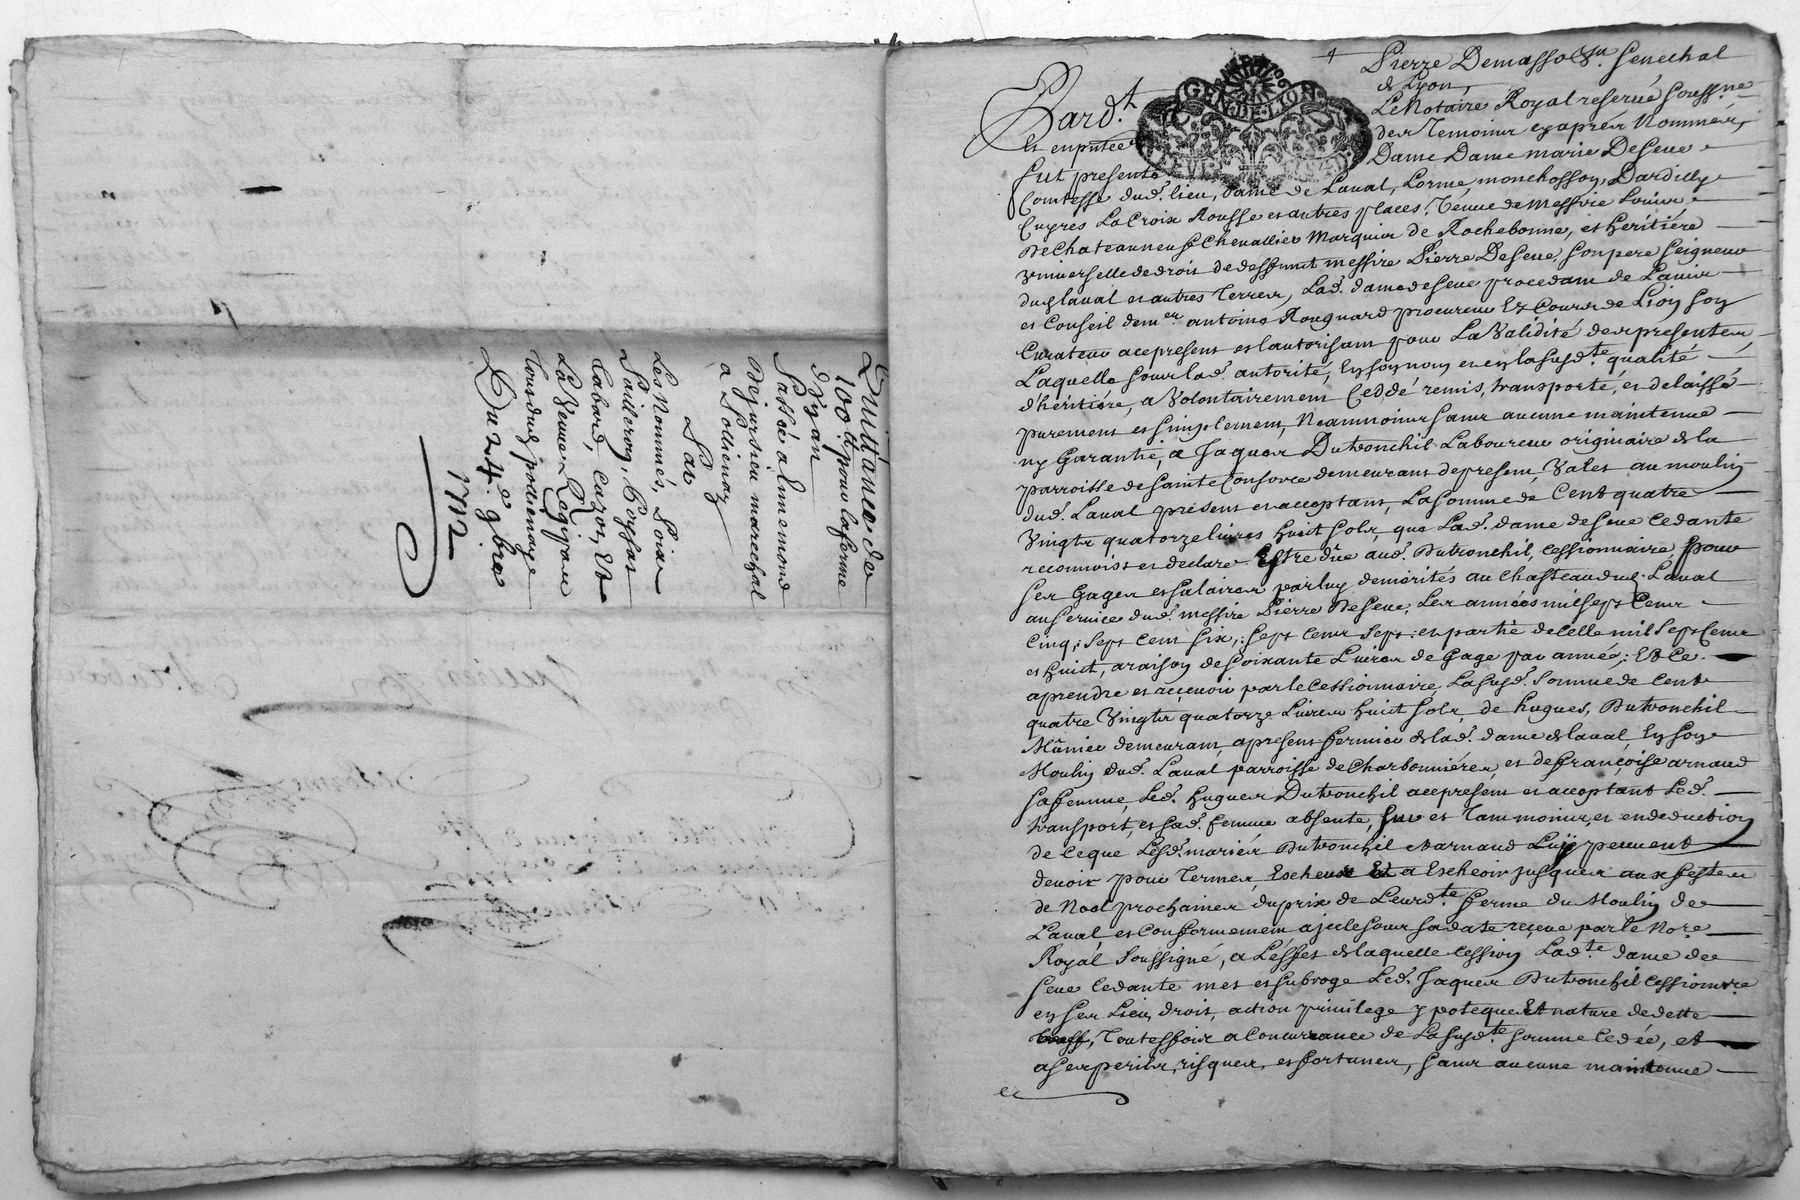 Quittance de
100 ₶ pour la ferme
d'yzàn
Passée a Ennemond
Dejussieu marechal
a Sollienaz
Par
Les Nommés, Loize
Saillerон, Poysat
Cabard, Cazot, Et
La Veuve
tous dud. pollienay
Du 24.e 9bre
1712
Pierre Demasso Sgr. Senechal
de Lyon,
Pard.t
Le Notaire Royal reservé souss.ne
et en pnce
des Temoins cy après Nommés,
GEN·DE·LION
Fut presente
Dame Dame marie De Seue
Comtesse dud. lieu, dame de Laval, Lorme monchosson, Dardilly
Cuyres La Croix Rousse et autres places, Veuue de Messire Louis
De Chateauneuf Chevallier Marquis de Rochebonne, et héritière
vniuerselle de droit de deffunt messire Pierre De Seue, son pere seigneur
dud. laval et autres Terres, Lad. dame de seue procedant de L'auis
et Conseil de m.er antoine Rougnard procureur Es Cours de Lion son
Curateur acepresent et l'autorisant pour La Validité des presentes
Laquelle sous lad. autorité, en son nom et en la susd.te qualité
d'héritiére, a Volontairement Ceddé remis, transporté, et delaissé
purement et simplement, Neanmoins sans aucune maintenue
ny Garantie, a Jaques Dutronchil Laboureur originaire de la
parroisse de sainte Consorce demeurant de present Valet au moulin
dud. Laval present et acceptant, La somme de Cent quatre
Vingts quatorze liures huit sols, que Lad. dame de Seue Cedante
reconnoist et declare Estre düe aud. Dutronchil, cessionnaire, pour
ses Gages et salaires par luy demérités au Chasteau dud. Laval
au seruice dud. messire Pierre De Seue, Les années mil sept Cens
Cinq, sept cent six, sept Cens sept et partie de Celle mil sept Cens
et huict, a raison de soixante Liures de Gage par année; Et Ce
a prendre et recevoir par le Cessionnaire, La susd. somme de Cent
quatre Vingts quatorze Liures huict sols, de hugues Dutronchil
Mûnier demeurant a present fermier de lad. dame de laval, En son
Moulin dud. Laval parroisse de Charbonniéres, et de françoise arnaud
sa femme, Led. hugues Dutronchil acepresent et acceptant Led.
transport, et sad. femme absente, sur et Tammoins, et en deduction
de ce que Lesd. mariés Dutronchil et arnaud Luy peuuent
devoir pour Termes Escheus Et a Escheoir jusques aux festes
de Noel prochaines, du prix de Leurd.te ferme du Moulin de
Laval, et Conformement a jcelle sous sa date receue par le No.re
Royal soussigné, a L'effet de laquelle cession, Lad.te dame de
Seue Cedante met et subroge Led. Jaques Dutronchil Cessionn.re
en ses Lieu droit, action priuilege ypoteque Et nature de dette
Toutesfois a Concurrance de La susd.te somme Cedée, et
a ses perils, risques, et fortunes, sans aucune maintenue